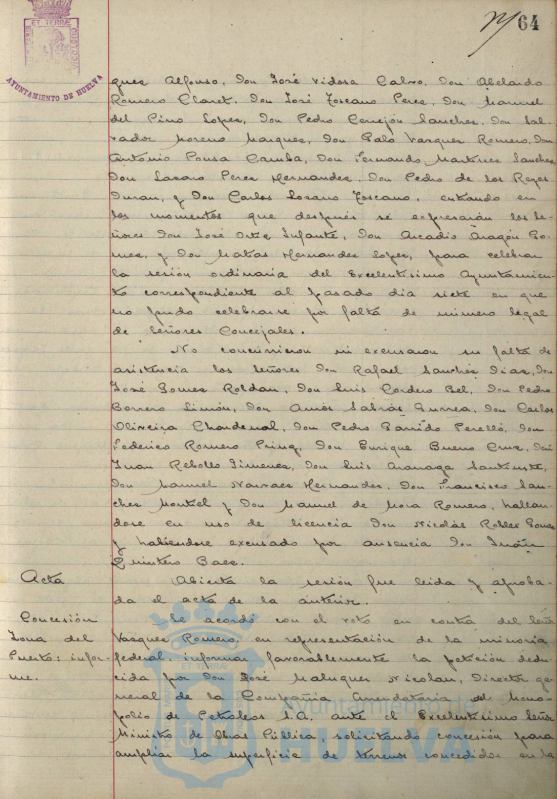 64
AYUNTAMIENTO DE HUELVA
guez Alfonso, Don José Vidosa Calvo, Don Abelardo
Romero Claret, Don José Toscano Perez, Don Manuel
del Pino Lopez, Don Pedro Cerrejón Sanchez, Don Sal-
vador Moreno Marquez, Don Galo Vazquez Romero, Don
Antonio Pousa Camba, Don Fernando Martinez Sanchez
Don Lazaro Perez Hernandez, Don Pedro de los Reyes
Duran, y Don Carlos Lozano Toscano, entrando en
los momentos que después se expresarán los Se-
ñores Don José Ortiz Infante, Don Arcadio Aragón Go-
mez, y Don Matias Hernandez Lopez, para celebrar
la sesión ordinaria del Excelentísimo Ayuntamien-
to correspondiente al pasado dia siete en que
no pudo celebrarse por falta de número legal
de Señores Concejales.
No concurrieron ni excusaron su falta de
asistencia los Señores Don Rafael Sanchez Diaz, Don
José Gomez Roldan, Don Luis Cordero Bel, Don Pedro
Borrero Limón, Don Amós Sabrás Gurrea, Don Carlos
Oliveira Chardenal, Don Pedro Garrido Perelló, Don
Federico Romero Don Enrique Bueno Cruz, Don
Juan Rebollo Jimenez, Don Luis
Don Manuel Narvaez Hernandez, Don Francisco San-
chez Montiel y Don Manuel de Mora Romero, hallan-
dose en uso de licencia Don Nicolás Robles Gomez
y habiéndose excusado por ausencia Don
Quintero Baez.
Acta
Abierta la sesión fue leida y aproba-
da el acta de la anterior.
Concesión
Zona del
Puerto: infor-
me.
Se acordó con el voto en contra del Señor
Vazquez Romero, en representación de la minoria
federal, informar favorablemente la petición dedu-
cida por Don José Maluquer Nicolau, Director ge-
neral de la Compañia Arrendataria del Mono-
polio de Petroleos S.A. ante el Excelentísimo Señor
Ministro de Obras Públicas, solicitando concesión para
ampliar la superficie de terrenos concedidos en la
Ayuntamiento de
HUELVA